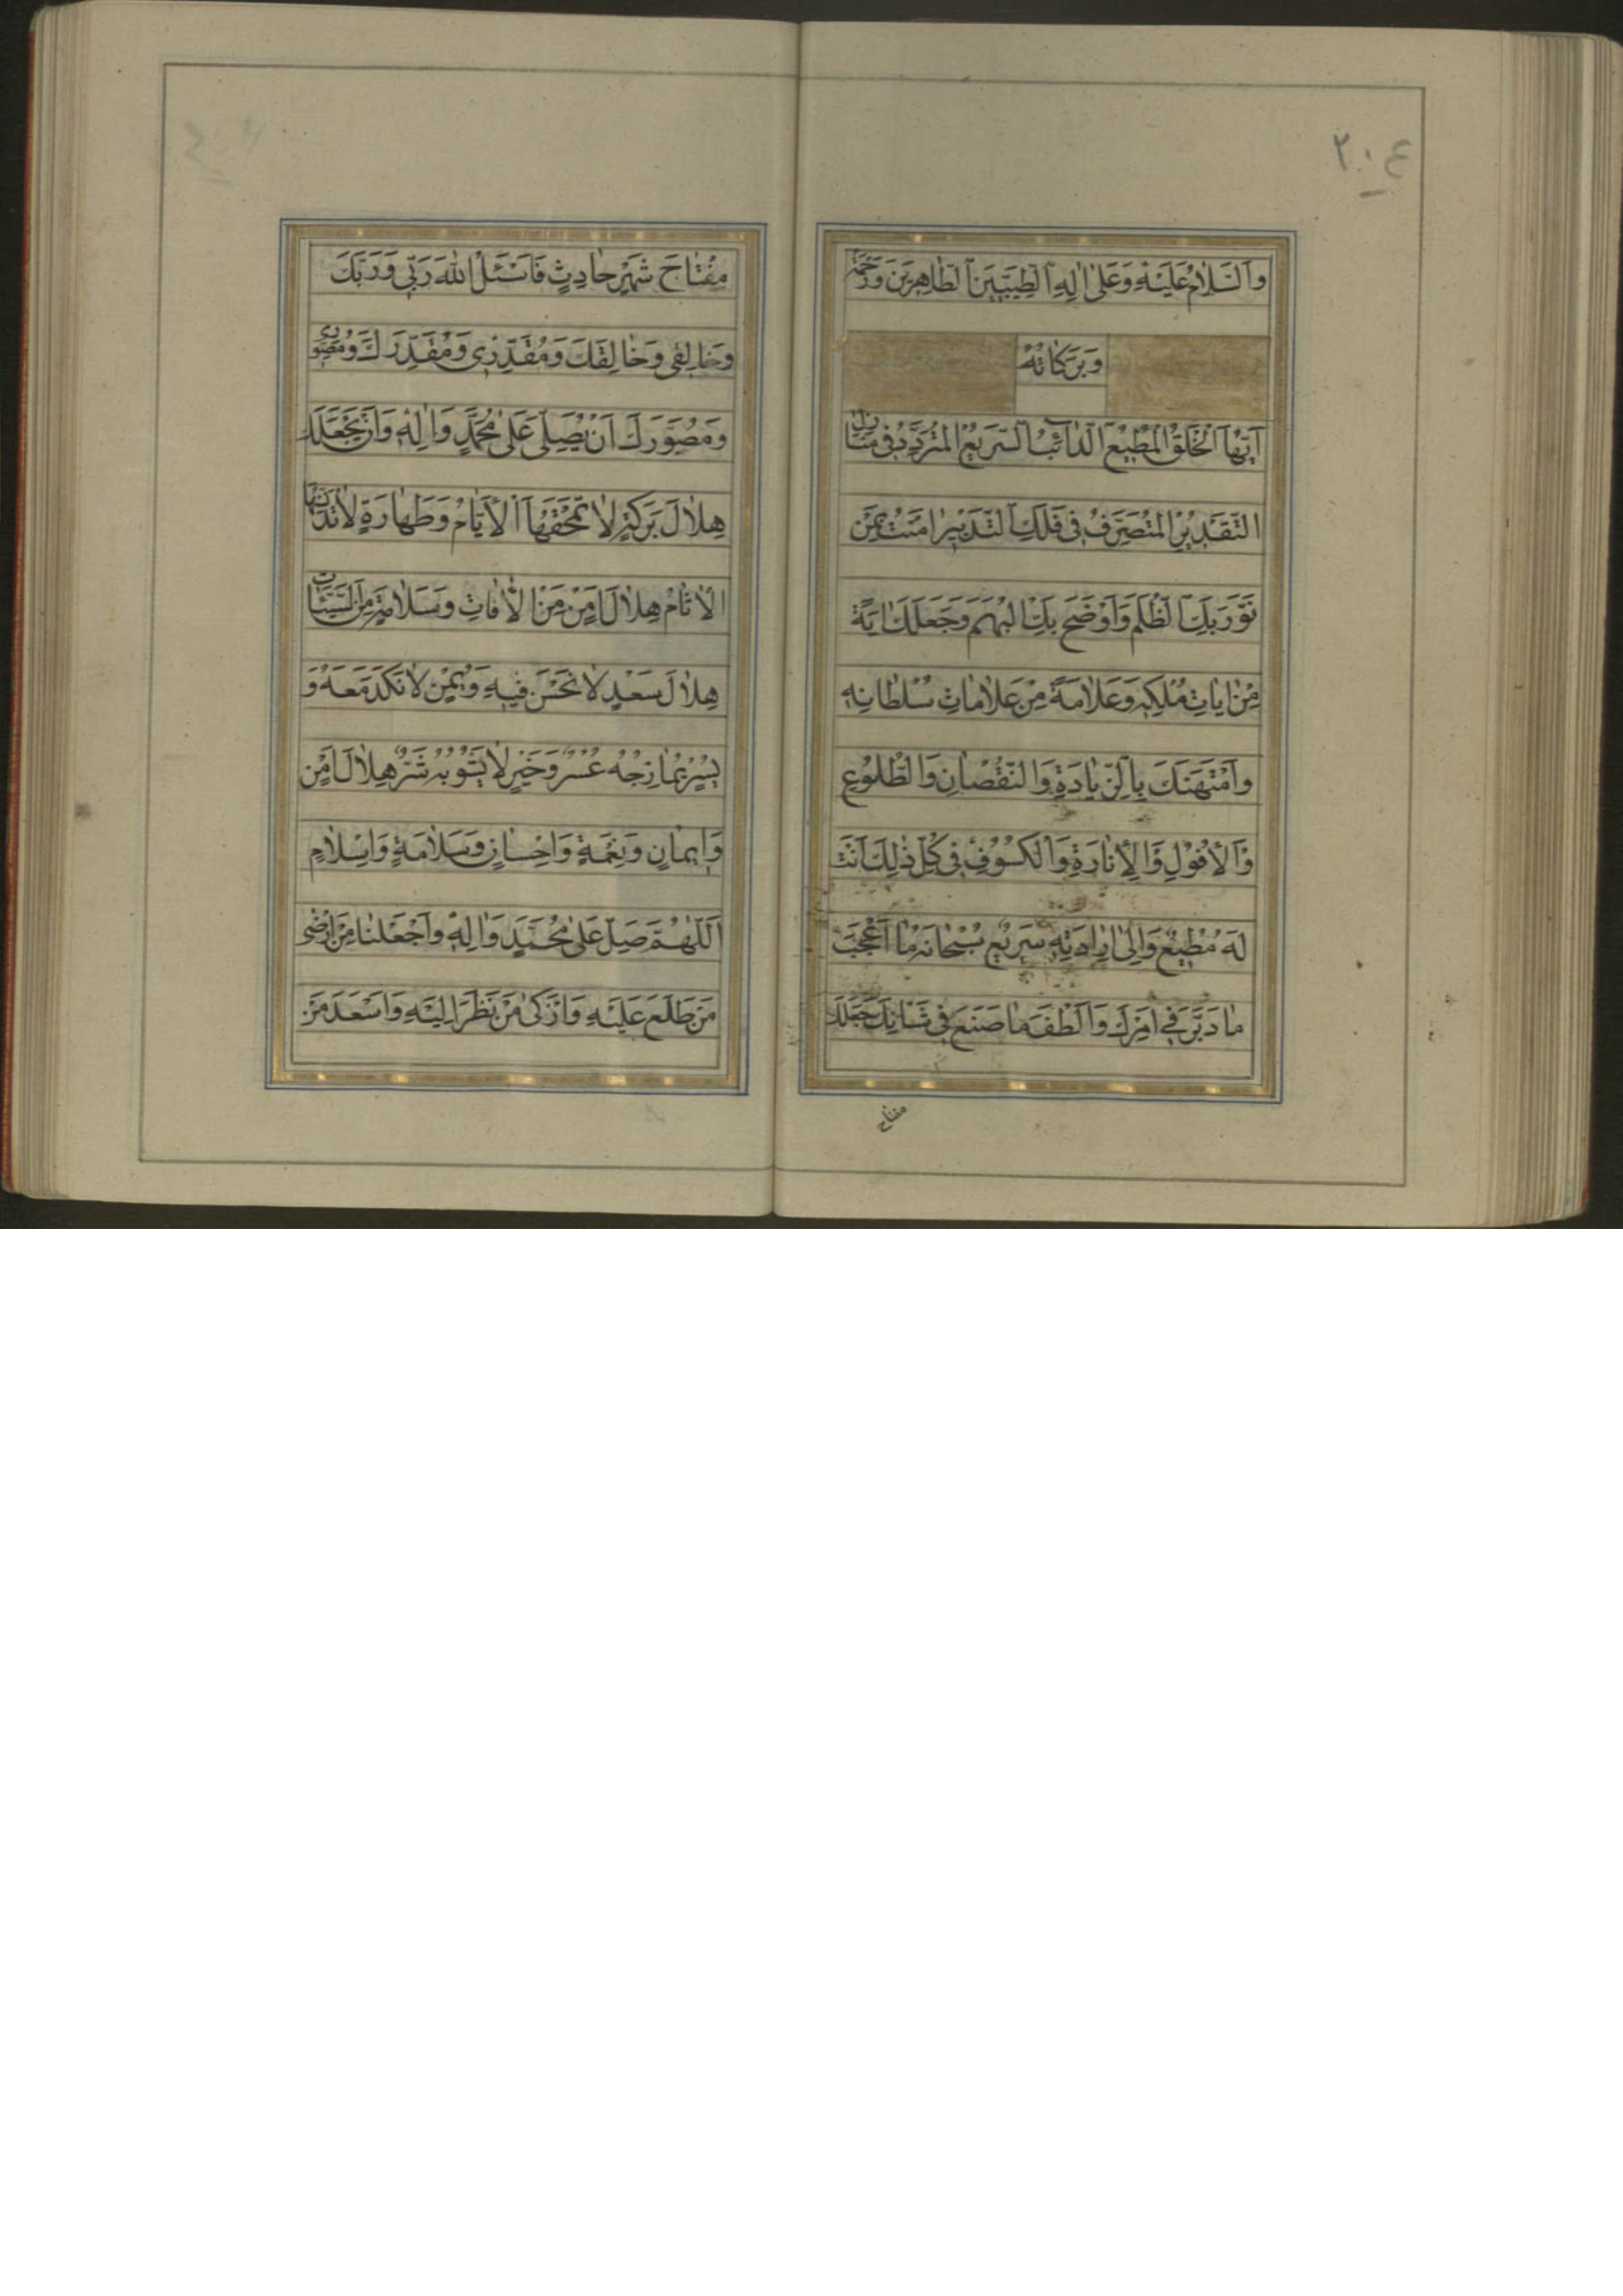 ٢٠٤
وَالسَّلَامُ عَلَيْهِ وَعَلىٰ اٰلِهِ الطَّيِّبِينَ الطَّاهِرِينَ وَرَحْمَةُ
وَبَرَكَاتُهُ
اَيُّهَا الْخَلْقُ الْمُطِيعُ الدَّائِبُ السَّرِيعُ الْمُتَرَدِّدُ فِي مَنَازِلِ
التَّقْدِيرِ الْمُتَصَرِّفُ فِي فَلَكِ التَّدْبِيرِ اٰمَنْتُ بِمَنْ
نَوَّرَ بِكَ الظُّلَمَ وَاَوْضَحَ بِكَ الْبُهَمَ وَجَعَلَكَ اٰيَةً
مِنْ اٰيَاتِ مُلْكِهِ وَعَلَامَةً مِنْ عَلَامَاتِ سُلْطَانِهِ
وَامْتَهَنَكَ بِالزِّيَادَةِ وَالنُّقْصَانِ وَالطُّلُوعِ
وَالْاُفُولِ وَالْاِنَارَةِ وَالْكُسُوفِ فِي كُلِّ ذٰلِكَ اَنْتَ
لَهُ مُطِيعٌ وَاِلىٰ اِرَادَتِهِ سَرِيعٌ سُبْحَانَهُ مَا اَعْجَبَ
مَا دَبَّرَ فِي اَمْرِكَ وَاَلْطَفَ مَا صَنَعَ فِي شَانِكَ جَعَلَكَ
مفتاح
مِفْتَاحَ شَهْرٍ حَادِثٍ فَاَسْئَلُ اللهَ رَبِّي وَرَبَّكَ
وَخَالِقِي وَخَالِقَكَ وَمُقَدِّرِي وَمُقَدِّرَكَ وَمُصَوِّرِي
وَمُصَوِّرَكَ اَنْ يُصَلِّيَ عَلىٰ مُحَمَّدٍ وَاٰلِهِ وَاَنْ يَجْعَلَكَ
هِلَالَ بَرَكَةٍ لَا تَمْحَقُهَا الْاَيَّامُ وَطَهَارَةٍ لَا تُدَنِّسُهَا
الْاٰثَامُ هِلَالَ اَمْنٍ مِنَ الْاٰفَاتِ وَسَلَامَةٍ مِنَ السَّيِّئَاتِ
هِلَالَ سَعْدٍ لَا نَحْسَ فِيهِ وَيُمْنٍ لَا نَكَدَ مَعَهُ وَ
يُسْرٍ يُمَازِجُهُ عُسْرٌ وَخَيْرٍ لَا يَشُوبُهُ شَرٌّ هِلَالَ اَمْنٍ
وَاِيمَانٍ وَنِعْمَةٍ وَاِحْسَانٍ وَسَلَامَةٍ وَاِسْلَامٍ
اَللّٰهُمَّ صَلِّ عَلىٰ مُحَمَّدٍ وَاٰلِهِ وَاجْعَلْنَا مِنْ اَرْضىٰ
مَنْ طَلَعَ عَلَيْهِ وَاَزْكىٰ مَنْ نَظَرَ اِلَيْهِ وَاَسْعَدَ مَنْ